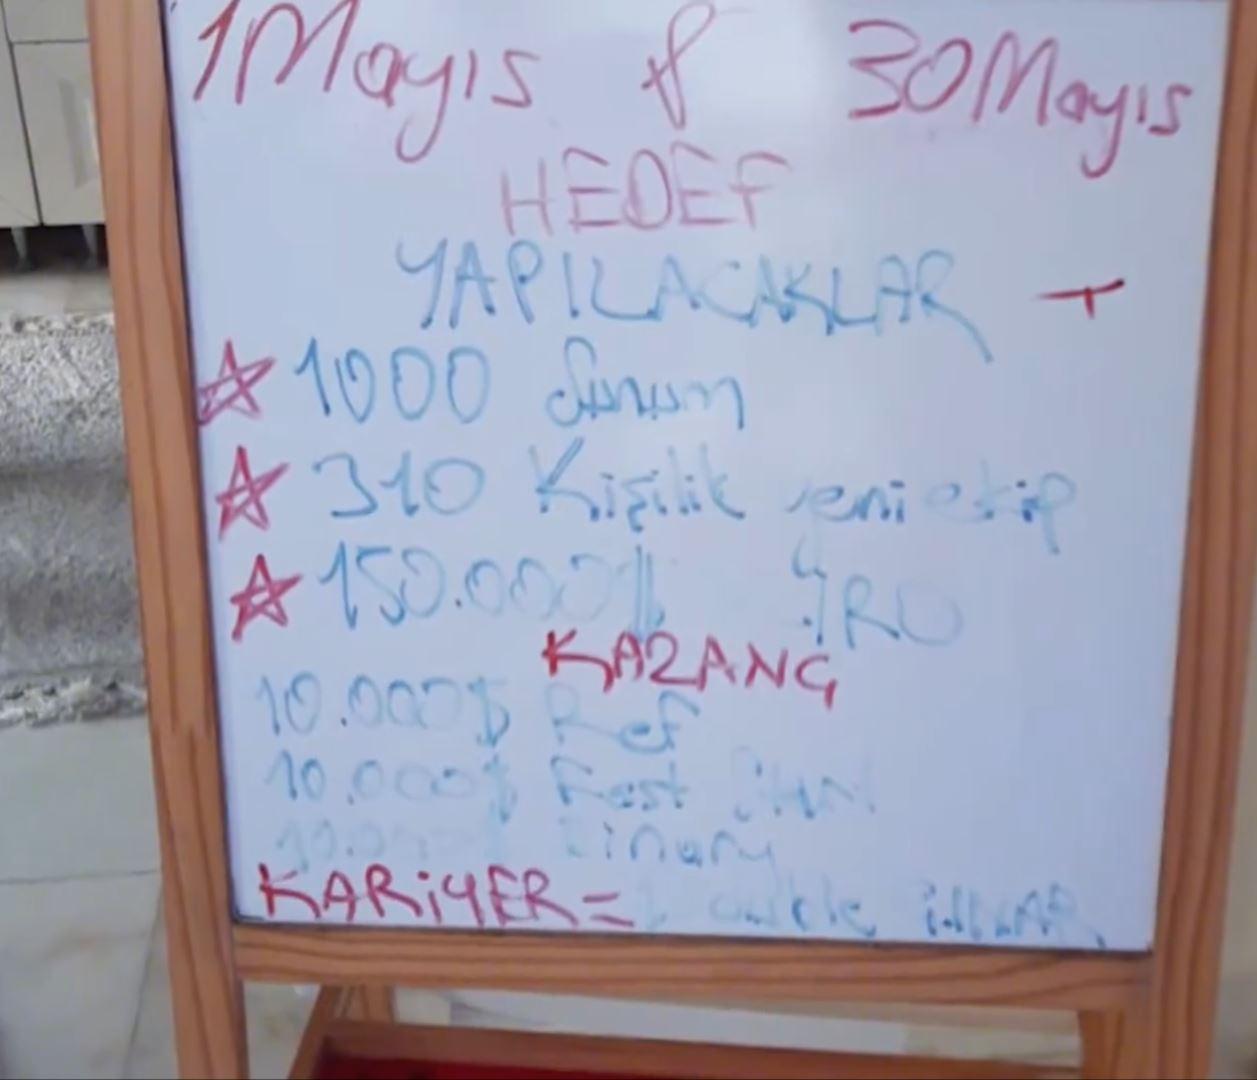 1 Mayıs & 30 Mayıs
HEDEF
YAPILACAKLAR +
1000 Sunum
310 Kişilik yeni ekip
150.000$
KAZANÇ
10.000$ Ref
10.000$ Fast
10.000$ Binary
KARİYER=